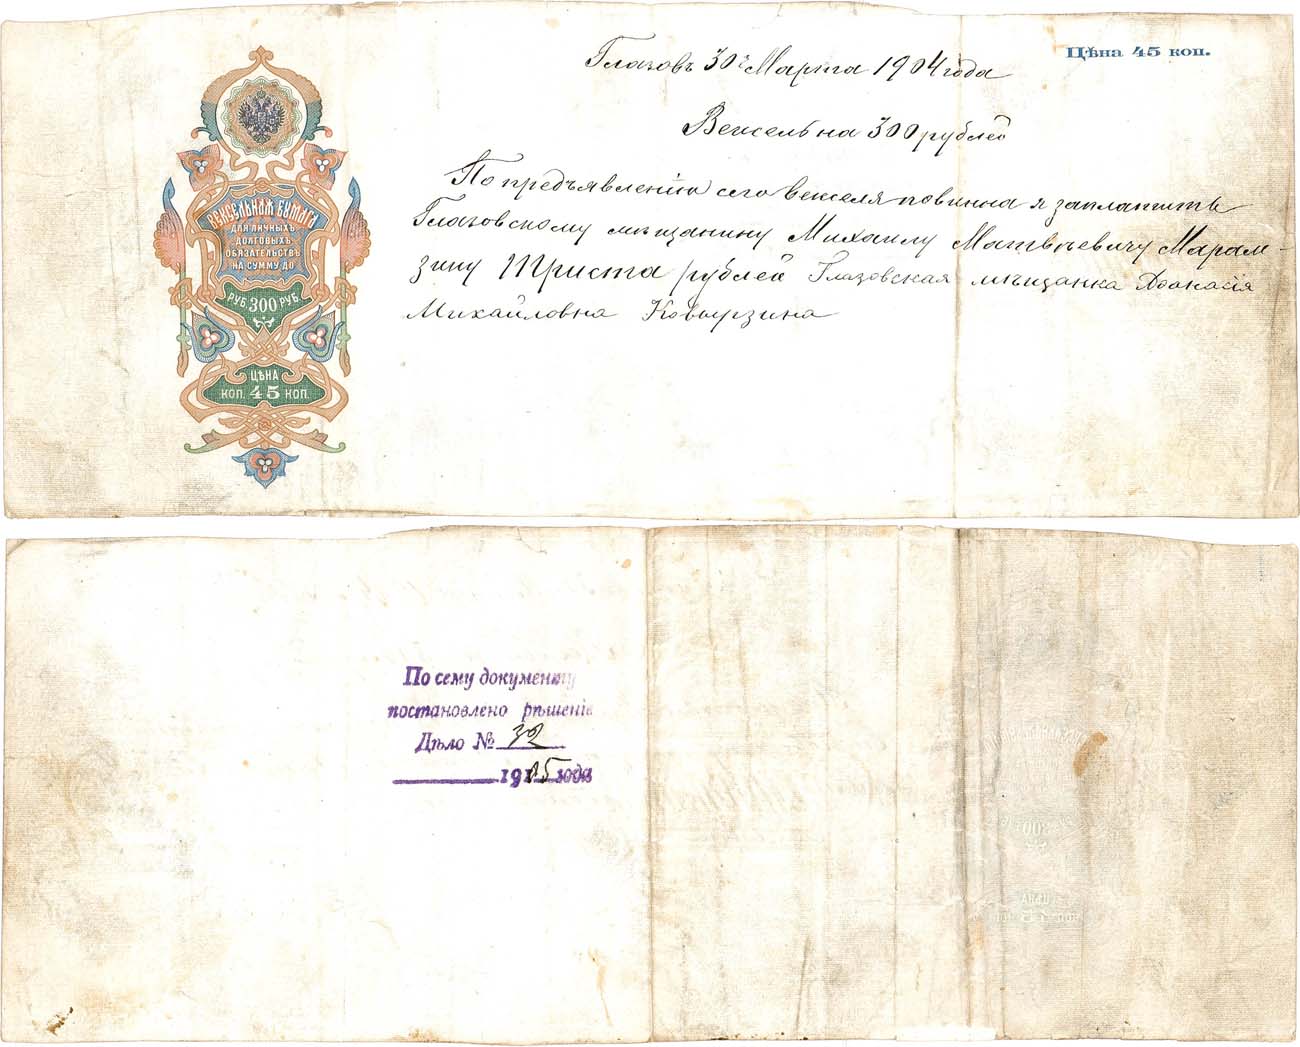 Цѣна 45 коп.
Глазовъ 30г Марта 1904 года
Вексель на 300 рублей
По предъявленію сего векселя повинна я заплатить
Глазовскому мѣщанину Михаилу Матвѣевичу Марам-
зину Триста рублей Глазовская мѣщанка Афанасія
Михайловна Ковырзина
ВЕКСЕЛЬНАЯ БУМАГА
ДЛЯ ЛИЧНЫХЪ
ДОЛГОВЫХЪ
ОБЯЗАТЕЛЬСТВЪ
НА СУММУ ДО
РУБ. 300 РУБ.
ЦѢНА
КОП. 45 КОП.
По сему документу
постановлено рѣшеніе
Дѣло № 32
1915 года